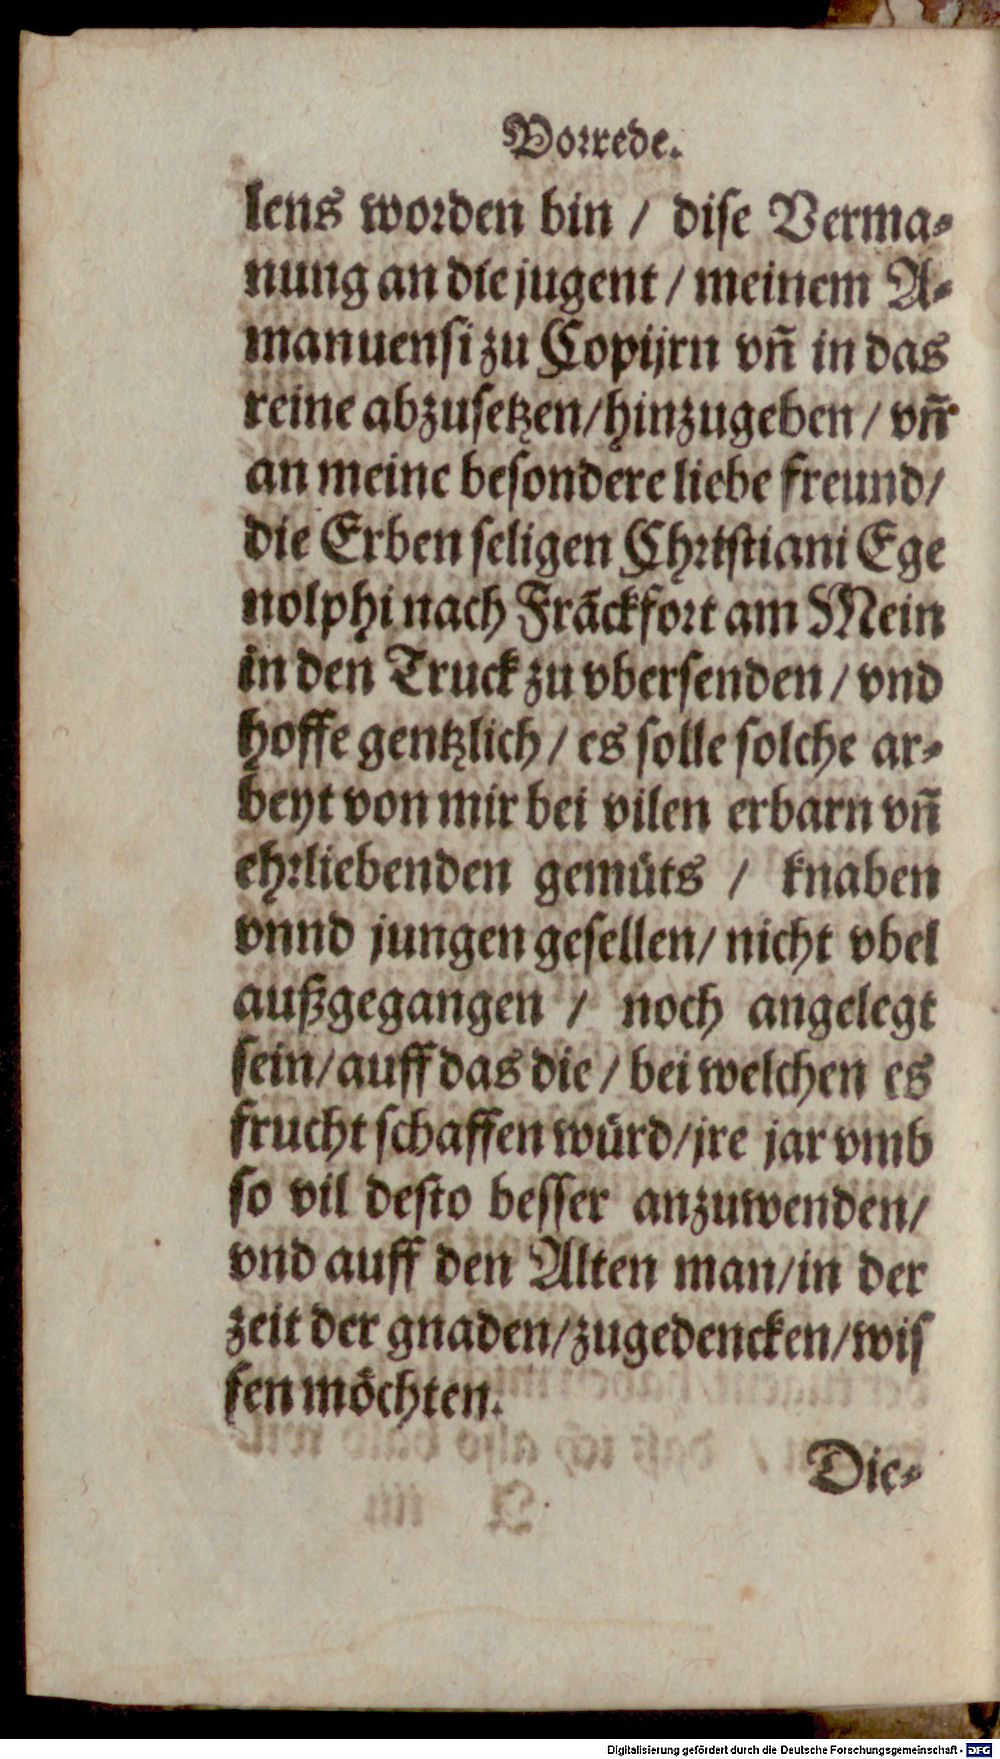 Vorrede.
lens worden bin / dise Verma-
nung an die jugent / meinem A-
manuensi zu Copijrn vñ in das
reine abzusetzen/hinzugeben / vñ
an meine besondere liebe freund/
die Erben seligen Christiani Ege
nolphi nach Frãckfort am Mein
in den Truck zu vbersenden / vnd
hoffe gentzlich / es solle solche ar-
beyt von mir bei vilen erbarn vñ
ehrliebenden gemüts / knaben
vnnd jungen gesellen/ nicht vbel
außgegangen / noch angelegt
sein/auff das die / bei welchen es
frucht schaffen würd/jre jar vmb
so vil desto besser anzuwenden/
vnd auff den Alten man/in der
zeit der gnaden/zugedencken/wis
sen möchten.
Die-
Digitalisierung gefördert durch die Deutsche Forschungsgemeinschaft - DFG